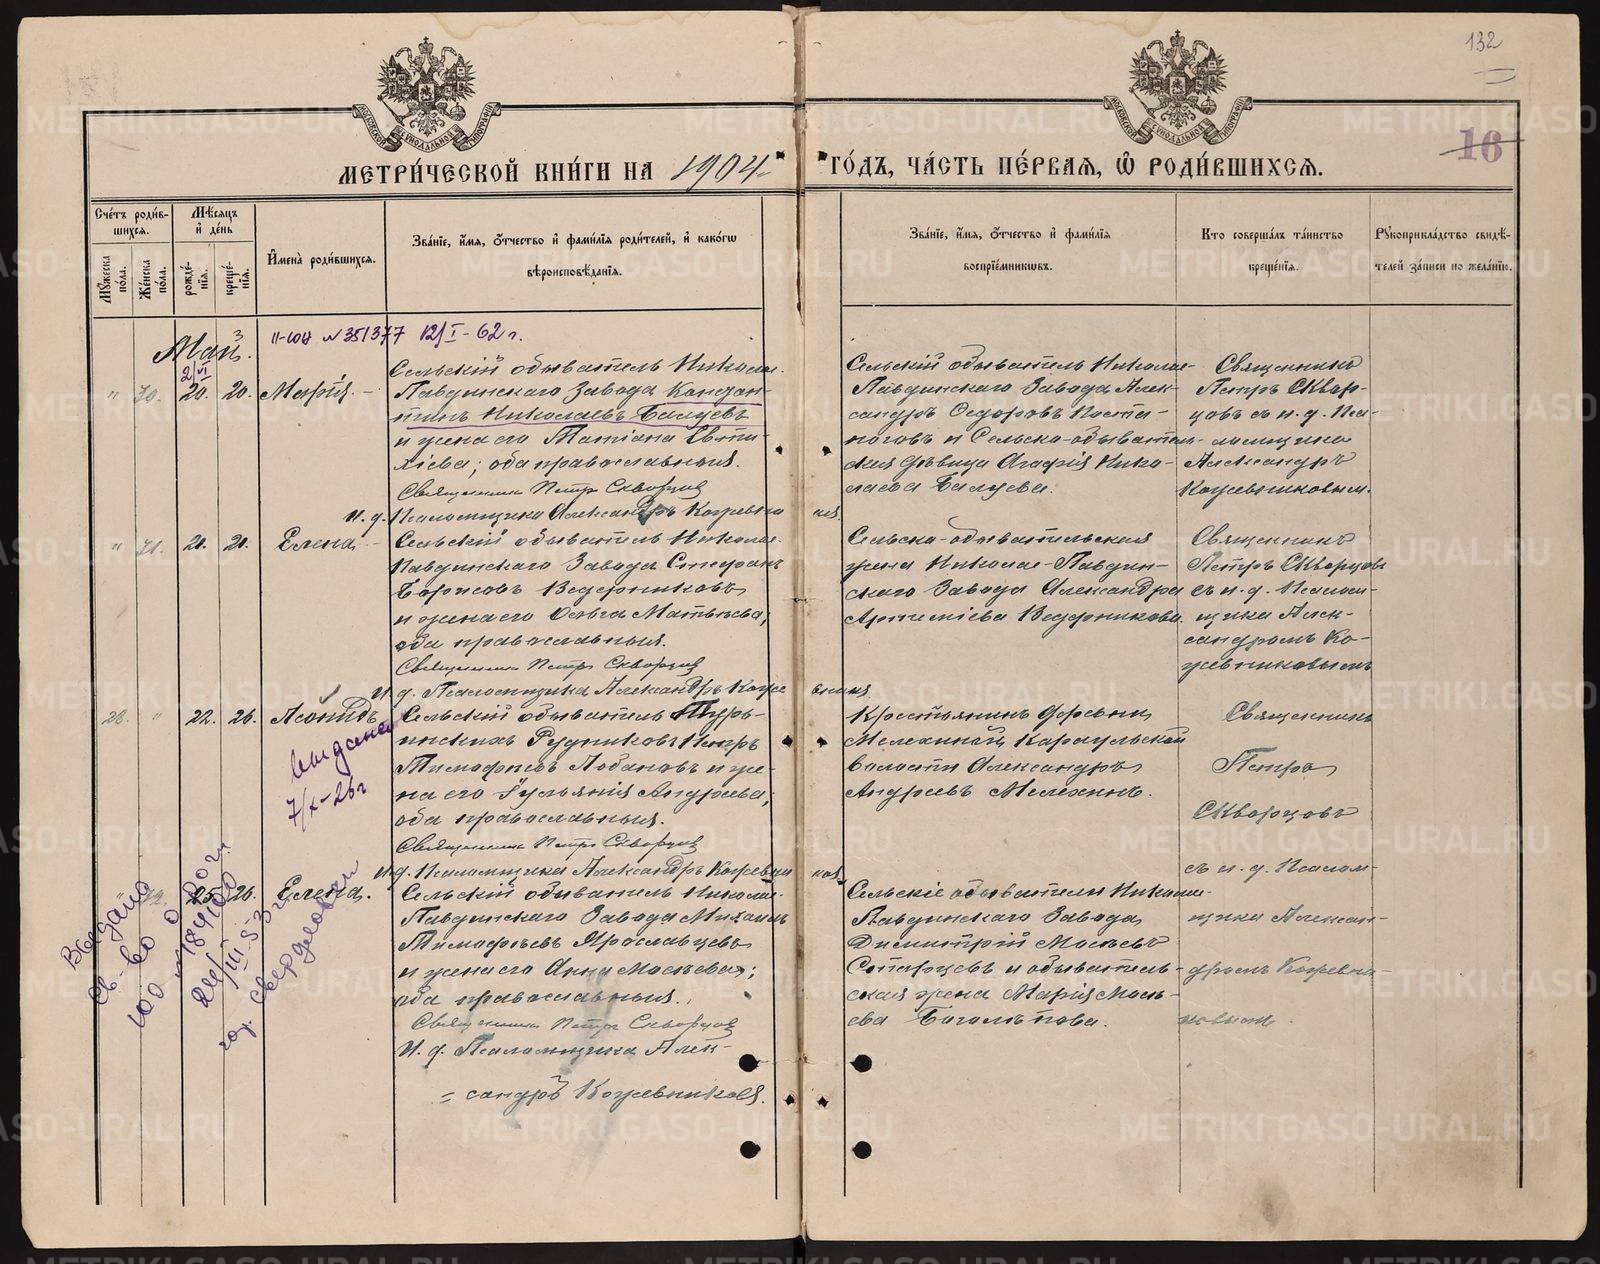 132
16
МОСКОВСКОЙ СѴНОДАЛЬНОЙ ТИПОГРАФІИ
МОСКОВСКОЙ СѴНОДАЛЬНОЙ ТИПОГРАФІИ
МЕТРИ́ЧЕСКОЙ КНИ́ГИ НА 1904 ГО́ДЪ, ЧА́СТЬ ПЕ́РВАЯ, Ѡ҆ РОДИ́ВШИХСЯ.
Счетъ роди́вшихся.
Му́жеска по́ла.
Же́нска по́ла.
Мѣ́сяцъ и҆ де́нь
рожде́нїя.
креще́нїя.
И҆мена̀ роди́вшихся.
Зва́нїе, и҆́мя, ѻ҆́тчество и҆ фами́лїя роди́телей, и҆ како́гѡ
вѣроисповѣ́данїя.
Зва́нїе, и҆́мя, ѻ҆́тчество и҆ фами́лїя
воспрїе́мниковъ.
Кто̀ соверша́лъ та́инство
креще́нїя.
Рꙋкоприкла́дство свидѣ́-
телей за́писи по жела́нїю.
Май.
II-юн № 351377 12/I-62 г.
" 70. 20. 20. Марія.
Сельскій обыватель Николае-
Павдинскаго Завода Констан-
тинъ Николаевъ Балуевъ
и жена его Татіана Евти-
хіева; оба православныя.
Священникъ Петръ Скворцовъ
И. д. Псаломщика Александръ Кожевни
ковъ.
Сельскій обыватель Николае-
Павдинскаго Завода Алек-
сандръ Ѳедоровъ Поста-
ноговъ и Сельско-обыватель-
ская дѣвица Агафія Нико-
лаева Балуева.
Священникъ
Петръ Сквор-
цовъ съ и. д. Пса-
ломщика
Александръ
Кожевниковым.
" 71. 21. 21. Елена
Сельскій обыватель Николае-
Павдинскаго Завода Стефанъ
Борисовъ Ведерниковъ
и жена его Ольга Матвѣева;
оба православныя.
Священникъ Петръ Скворцовъ
И. д. Псаломщика Александръ Коже
вниковъ
Сельско-обывательская
жена Николае-Павдин-
скаго Завода Александра
Артеміева Ведерникова.
Священникъ
Петръ Скворцовъ
съ и. д. Псалом-
щика Алек-
сандромъ Ко-
жевниковымъ
28. " 22. 26. Леонидъ
Выдана
7/X-26 г
Сельскій обыватель Турь-
инскихъ Рудниковъ Петръ
Тимофѣевъ Лобановъ и же-
на его Іуліанія Андреева;
оба православныя.
Священникъ Петръ Скворцовъ
И. д. Псаломщика Александръ Кожевни
ковъ
Крестьянинъ деревни
Мелехиной Караульской
волости Александръ
Андреевъ Мелехинъ.
Священникъ
Петръ
Скворцовъ
съ и. д. Псалом-
" 72. 25. 26. Елена.
Сельскій обыватель Николае-
Павдинскаго Завода Михаилъ
Тимофѣевъ Ярославцевъ
и жена его Анна Мосѣева;
оба православныя.
Священникъ Петръ Скворцовъ
И. д. Псаломщика Алек-
= сандръ Кожевниковъ.
Сельскіе обыватели Николае-
Павдинскаго Завода
Димитрій Мосѣевъ
Старцевъ и обыватель-
ская жена Марія Мосѣ-
ева
щика Алексан-
дромъ Кожевни-
ковым.
Выдано
св-во о рог.
гор. Свердловск